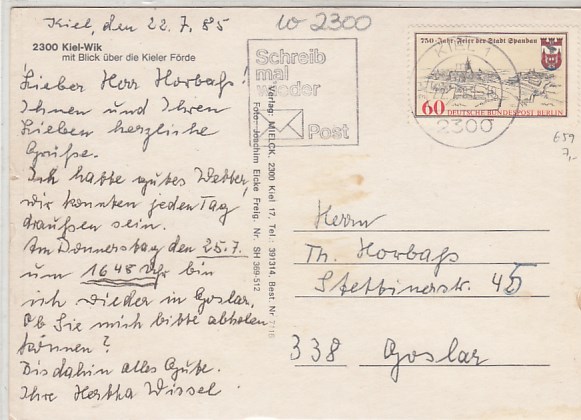 Kiel, den 22.7.85
w 2300
2300 Kiel-Wik
mit Blick über die Kieler Förde
Lieber Herr Horbaß!
Ihnen und Ihren
Lieben herzliche
Grüße.
Ich hatte gutes Wetter,
wir konnten jeden Tag
draußen sein.
Am Donnerstag den 25.7.
um 16 48 Uhr bin
ich wieder in Goslar.
Ob Sie mich bitte abholen
können?
Bis dahin alles Gute.
Ihre Hertha Wissel
Schreib
mal
wieder
Post
Verlag: MIELCK, 2300 Kiel 17, Tel.: 391314, Best. Nr.
Foto: Joachim Eicke Freig. Nr. SH 369-512
750-Jahr-Feier der Stadt Spandau
60 DEUTSCHE BUNDESPOST BERLIN
KIEL 1
2300
659
7,-
Herrn
Th. Horbaß
Stettinerstr. 45
338 Goslar